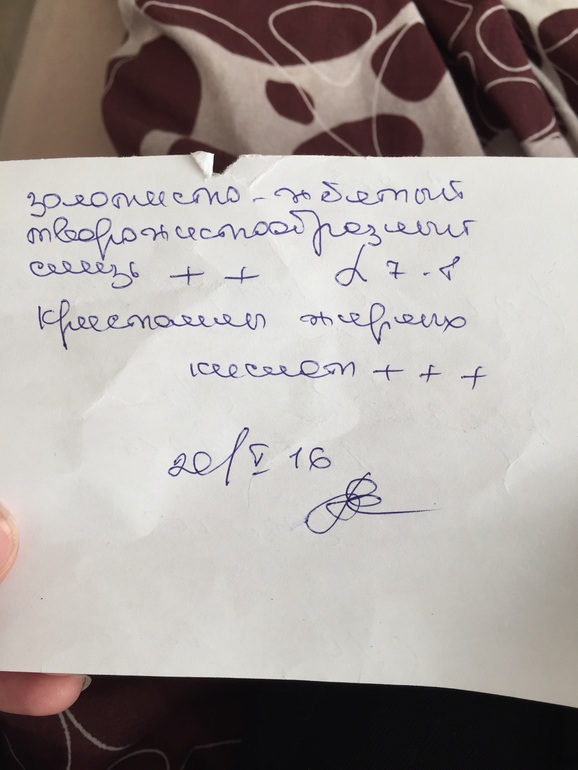 золотисто-жёлтый
творожистообразный
слизь + +
Кристаллы жирных
кислот + + +
20/V 16